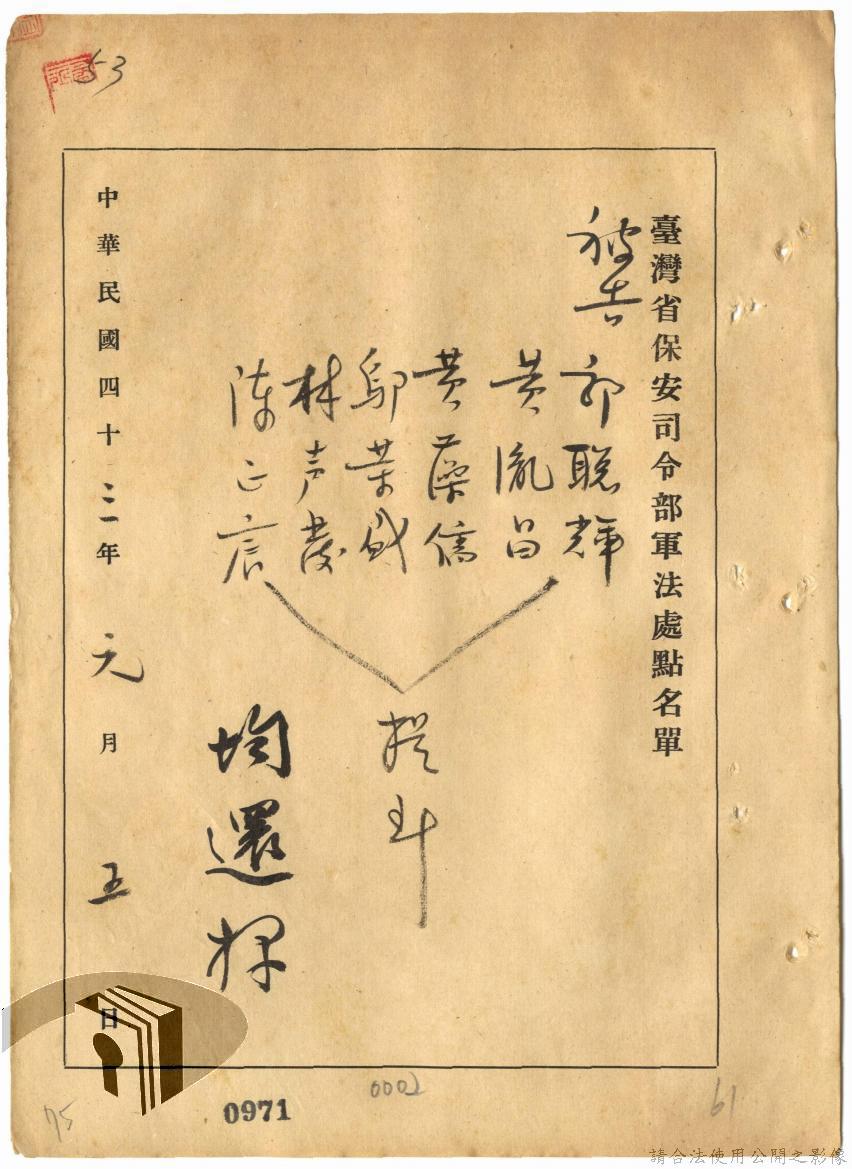 53
臺灣省保安司令部軍法處點名單
被告
郭聰輝
黃胤昌
黃藥儒
鄔荣盛
林声發
陈正宸
提到
均還押
中華民國四十三年元月五日
0002
0971
75
61
請合法使用公開之影像